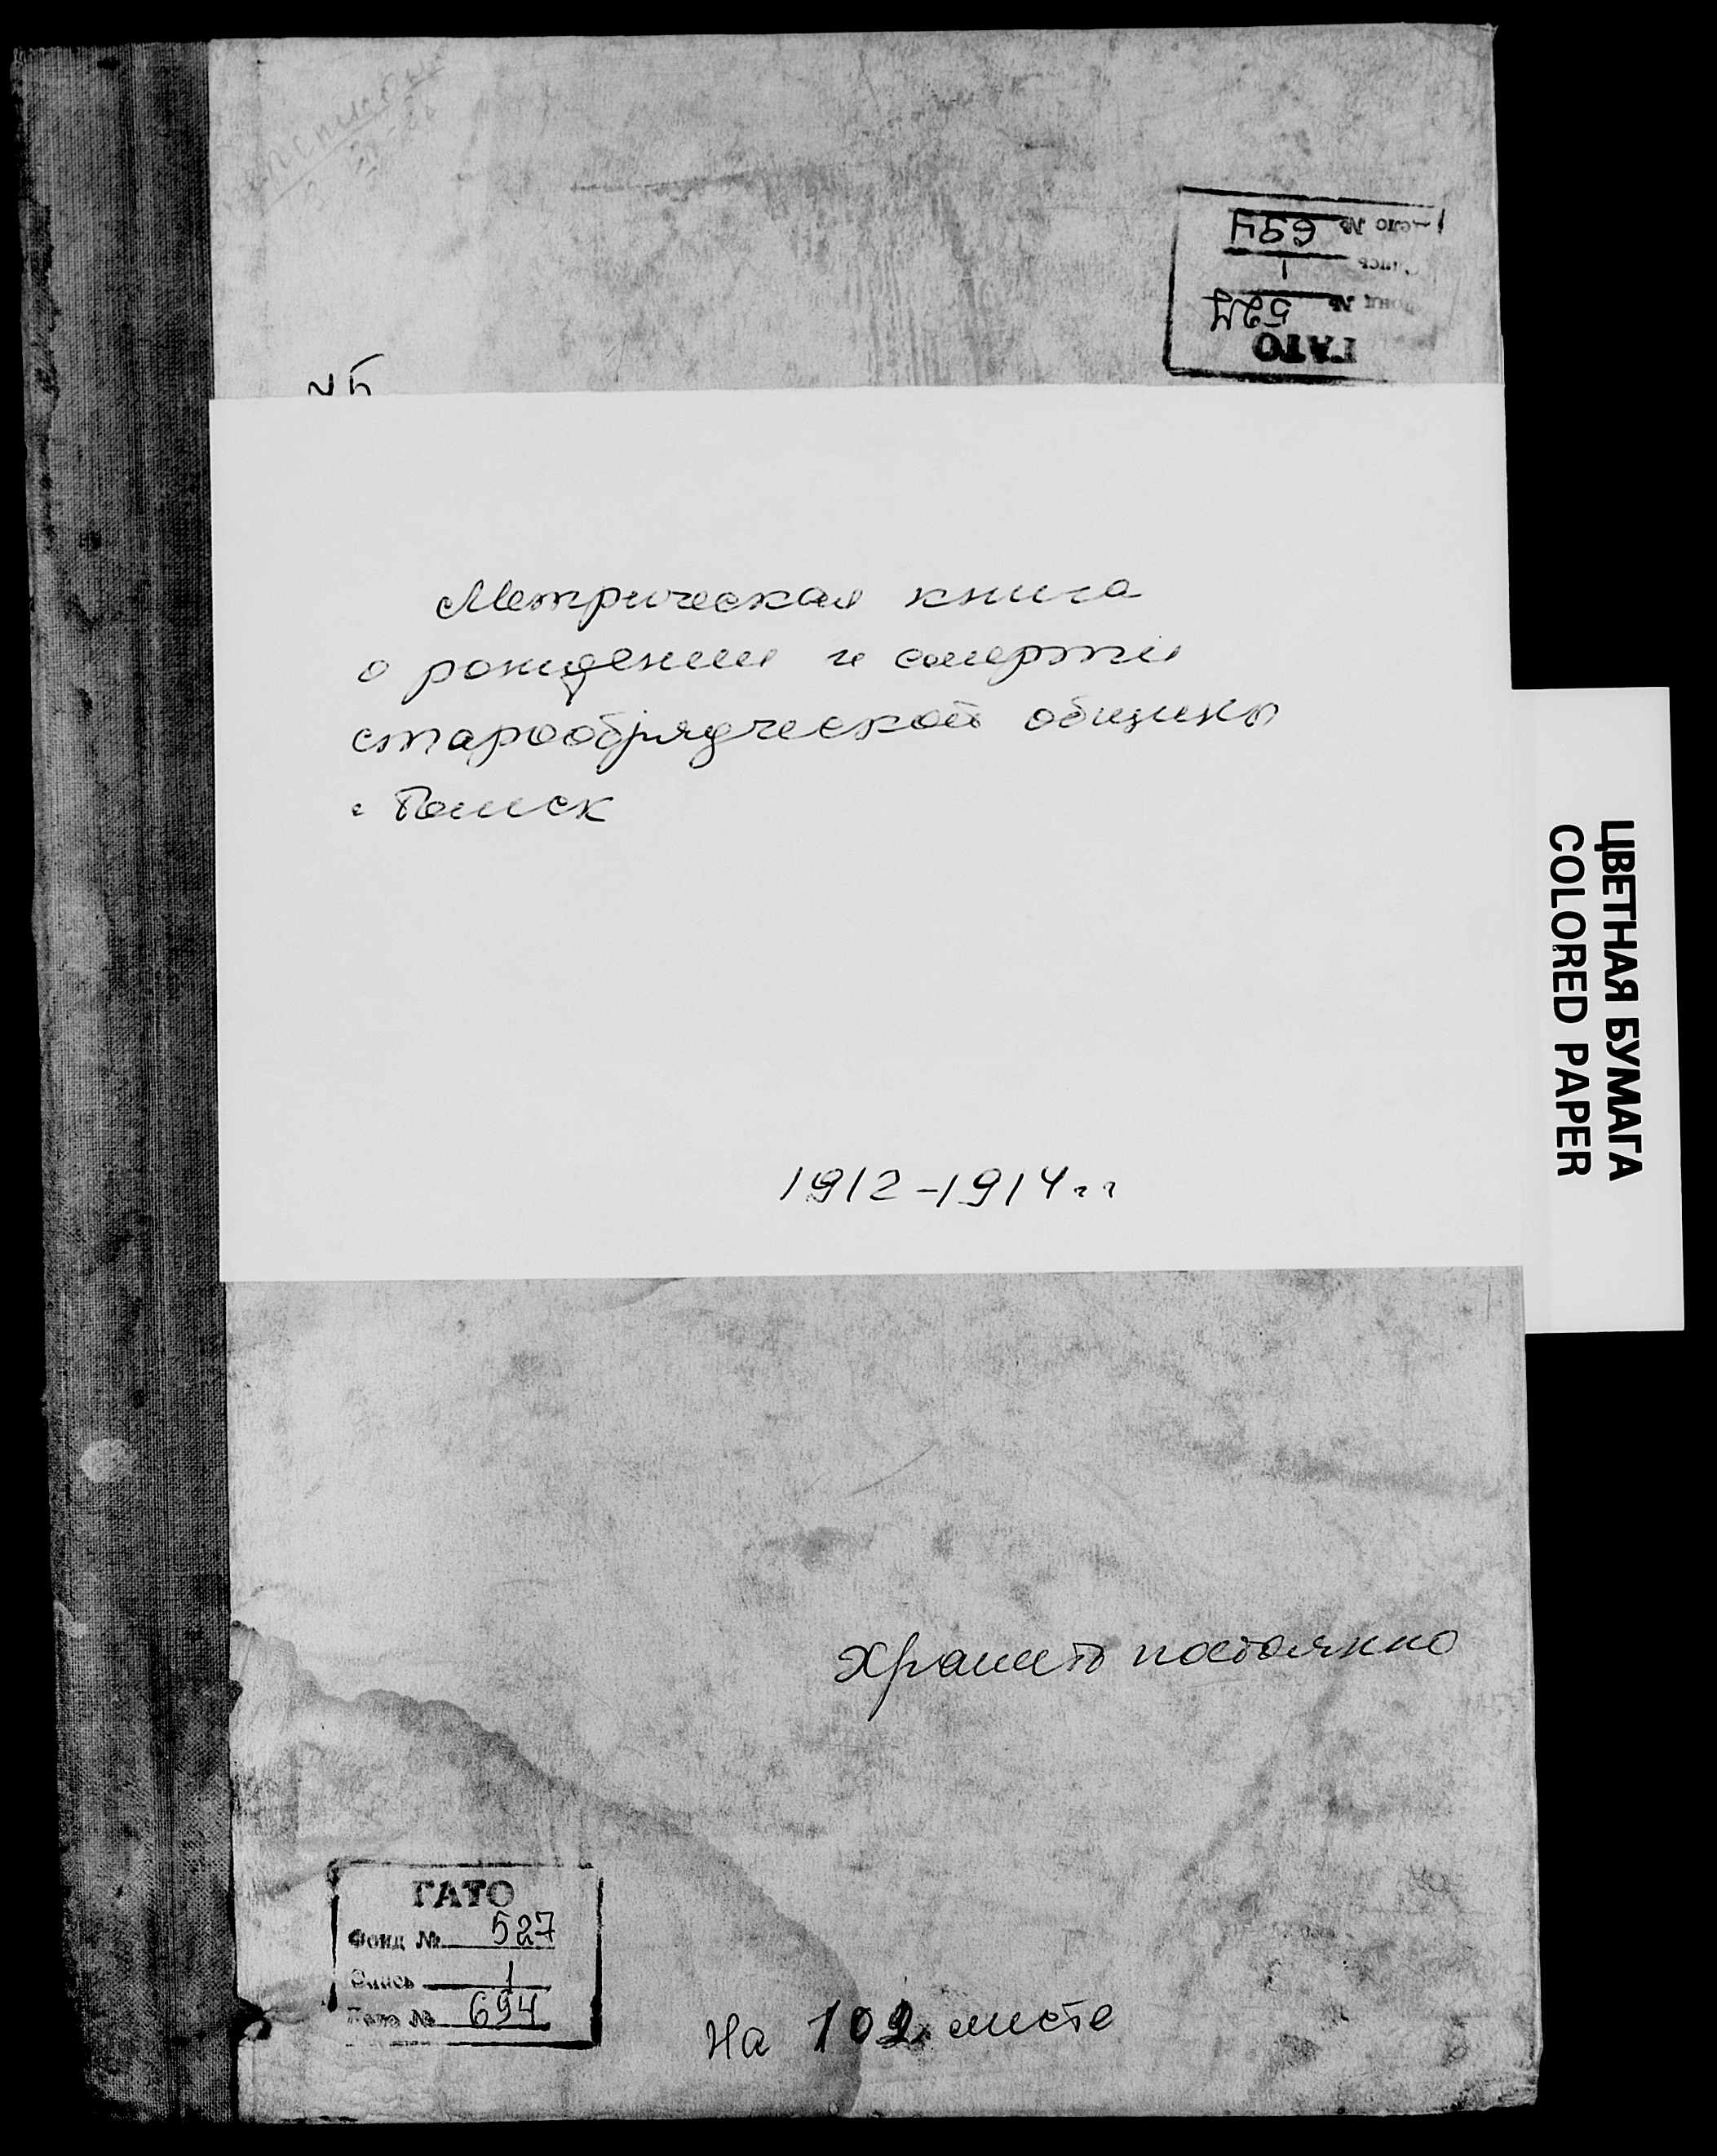 ГАТО
Фонд № 527
Опись 1
Дело № 694
№ Б
Метрическая книга
о рождении и смерти
старообрядческой общины
г. Томск
1912-1914 гг
ЦВЕТНАЯ БУМАГА
COLORED PAPER
Хранить постоянно
ГАТО
Фонд № 527
Опись 1
Дело № 694
На 102 листе